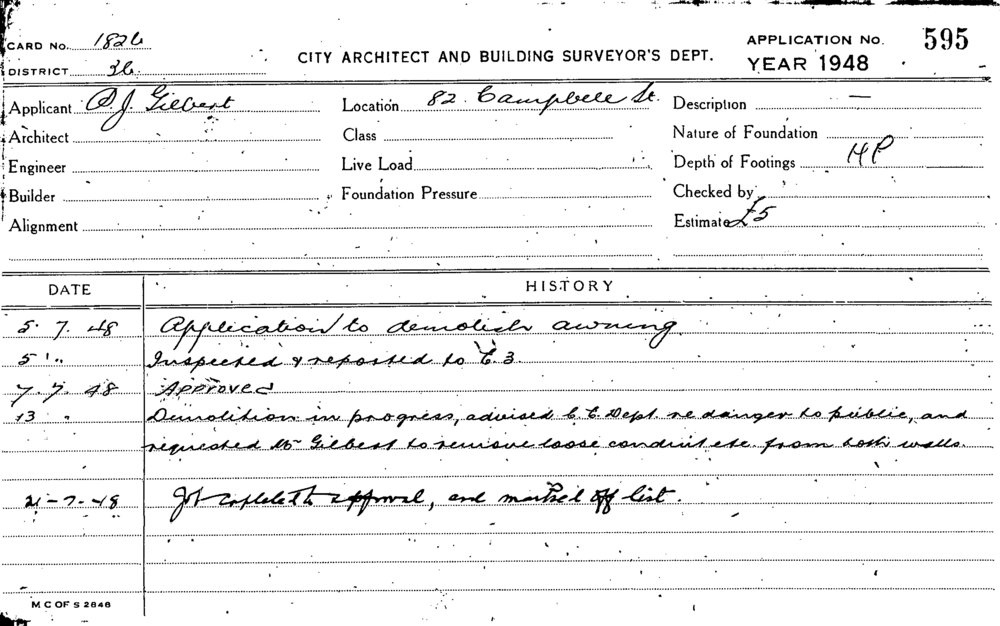 CARD NO. 1826
DISTRICT 36.
CITY ARCHITECT AND BUILDING SURVEYOR'S DEPT.
APPLICATION NO. 595
YEAR 1948
Applicant Gilbert
Architect
Engineer
Builder
Alignment
Location 82 Campbell St.
Class
Live Load
Foundation Pressure
Description —
Nature of Foundation
Depth of Footings HP
Checked by
Estimate £5
DATE HISTORY
5. 7. 48 Application to demolish awning.
5 " " Inspected & reported to C.B.
7. 7. 48 Approved
13 " Demolition in progress, advised C.E. Dept re danger to public, and
requested Mr Gilbert to remove loose conduit etc. from both walls.
21-7-48 Job complete to approval, and marked off list.
M C OF S 2848